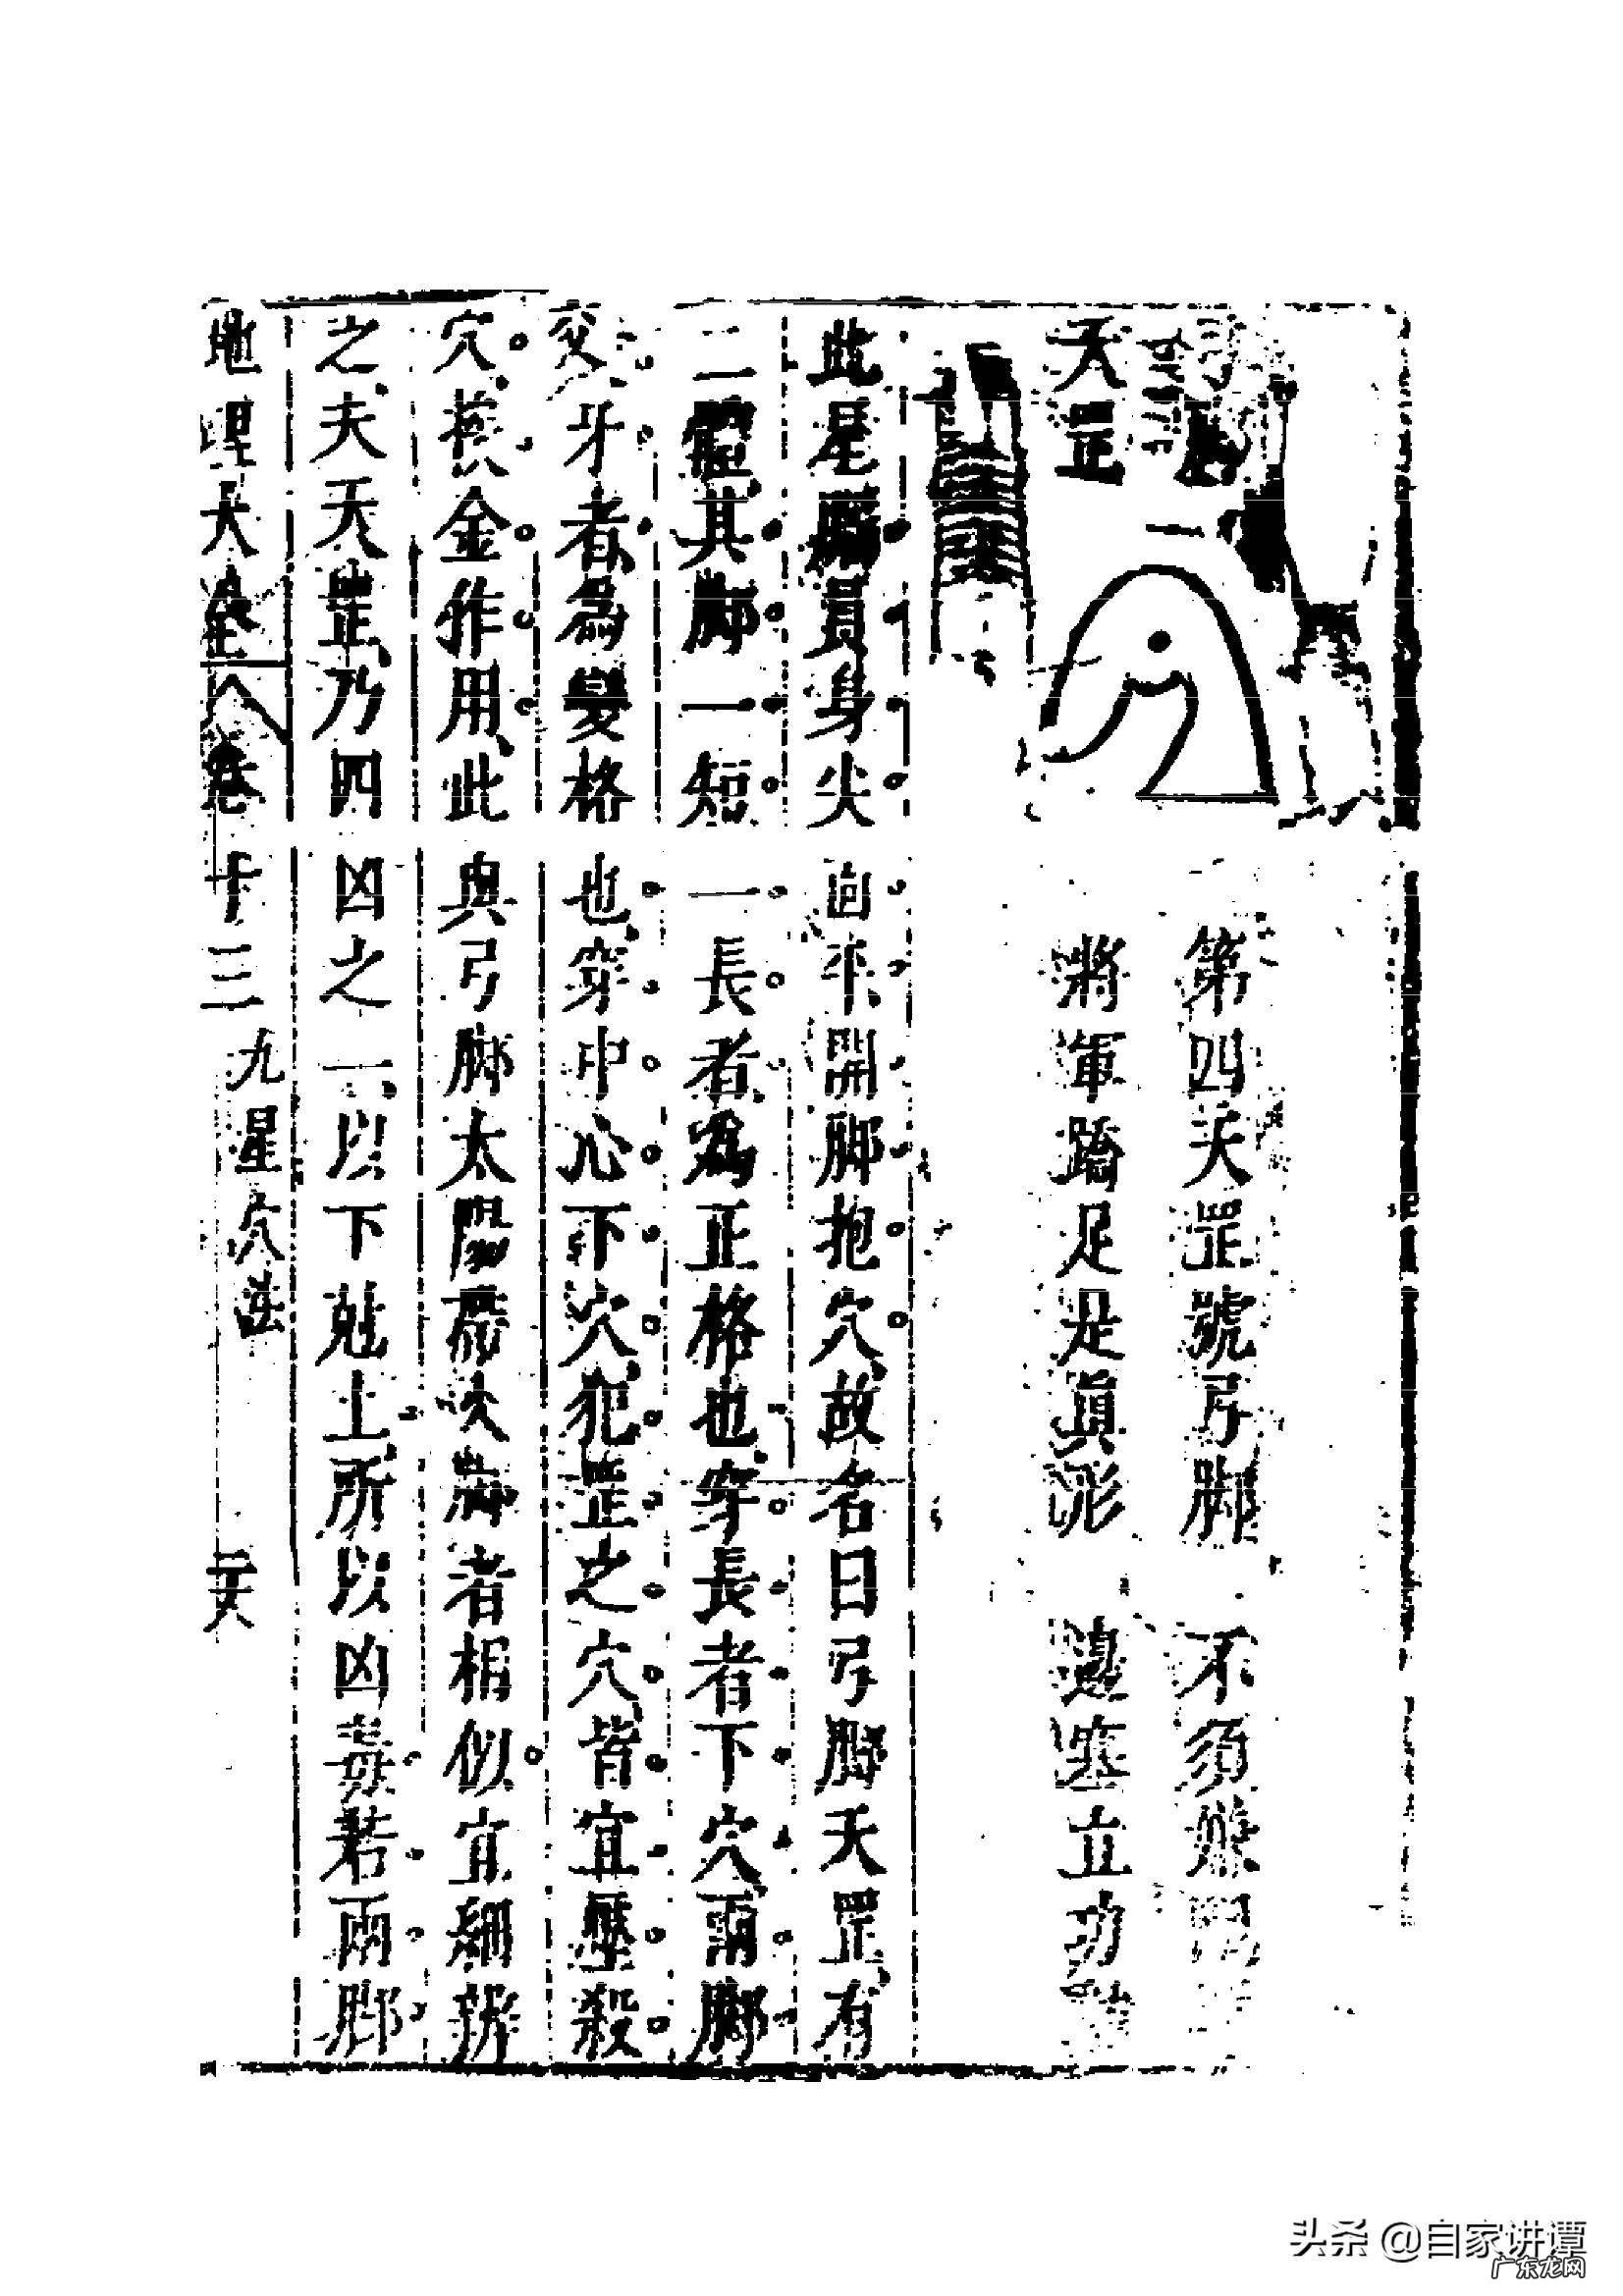 弓脚
天罡
第四天罡號弓脚 不須嫌
將軍蹻足是真形 邊塞立功
此星腦員身尖面平開脚抱穴故名曰弓脚天罡有
二體其脚一短一長者為正格也穿長者下穴兩脚
交牙者為變格也穿中心下穴犯罡之穴皆宜壓殺
穴金作用此與弓脚太陽帶火脚者相似宜細辨
之夫天罡乃四凶之一以下尅上所以凶毒若兩脚
地理大全 卷十三 九星穴法 二六
头条 @自家讲谭
广东龙网